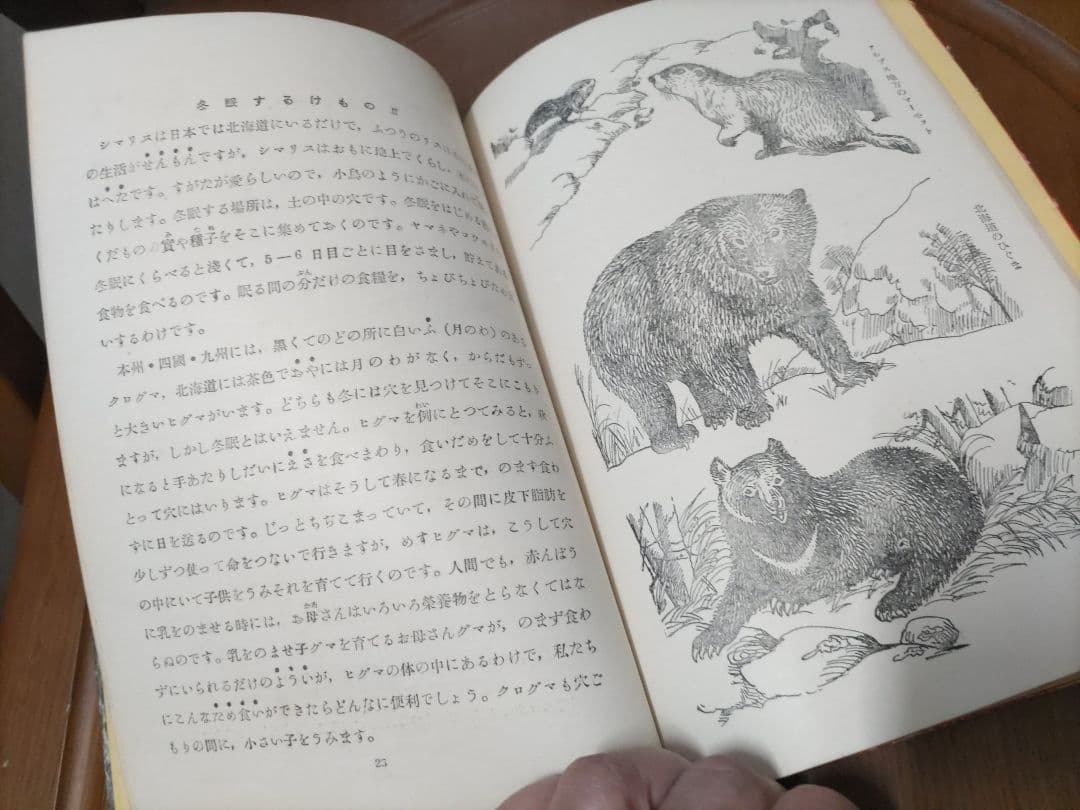 冬眠するけもの II
シマリスは日本では北海道にいるだけで，ふつうのリスは
の生活がせんもんですが，シマリスはおもに地上でくらし，
はへたです。すがたが愛らしいので，小鳥のようにかごに入れて
たりします。冬眠する場所は，土の中の穴です。冬眠をはじめる
くだものの實や種子をそこに集めておくのです。ヤマネやコウモリ
冬眠にくらべると淺くて，5—6日目ごとに目をさまし，貯えて
食物を食べるのです。眠る間の分だけの食糧を，ちょびちょび
いするわけです。
本州・四國・九州には，黒くてのどの所に白いふ（月のわ）のある
クログマ，北海道には茶色でおやには月のわがなく，からだもずっ
と大きいヒグマがいます。どちらも冬には穴を見つけてそこにこもり
ますが，しかし冬眠とはいえません。ヒグマを例にとつてみると，秋
になると手あたりしだいにえさを食べまわり，食いだめをして十分ふ
とって穴にはいります。ヒグマはそうして春になるまで，のまず食わ
ずに日を送るのです。じっとちぢこまっていて，その間に皮下脂肪を
少しずつ使って命をつないで行きますが，めすヒグマは，こうして穴
の中にいて子供をうみそれを育てて行くのです。人間でも，赤んぼう
に乳をのませる時には，お母さんはいろいろ榮養物をとらなくてはな
らぬのです。乳をのませ子グマを育てるお母さんグマが，のまず食わ
ずにいられるだけのよういが，ヒグマの体の中にあるわけで，私たち
にこんなため食いができたらどんなに便利でしょう。クログマも穴ご
もりの間に，小さい子をうみます。
23
北海道のひぐま